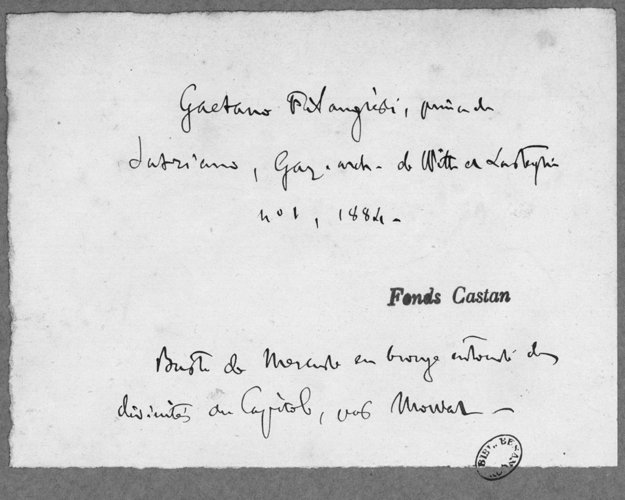 Gaetano Filangiéri, prince de
Satriano, Gaz. arch. de Witte et Lasteyrie
nº 1, 1884.
Fonds Castan
Buste de Mercure en bronze entouré des
divinités du Capitole, par Mowat —
BIBL. BESANÇON